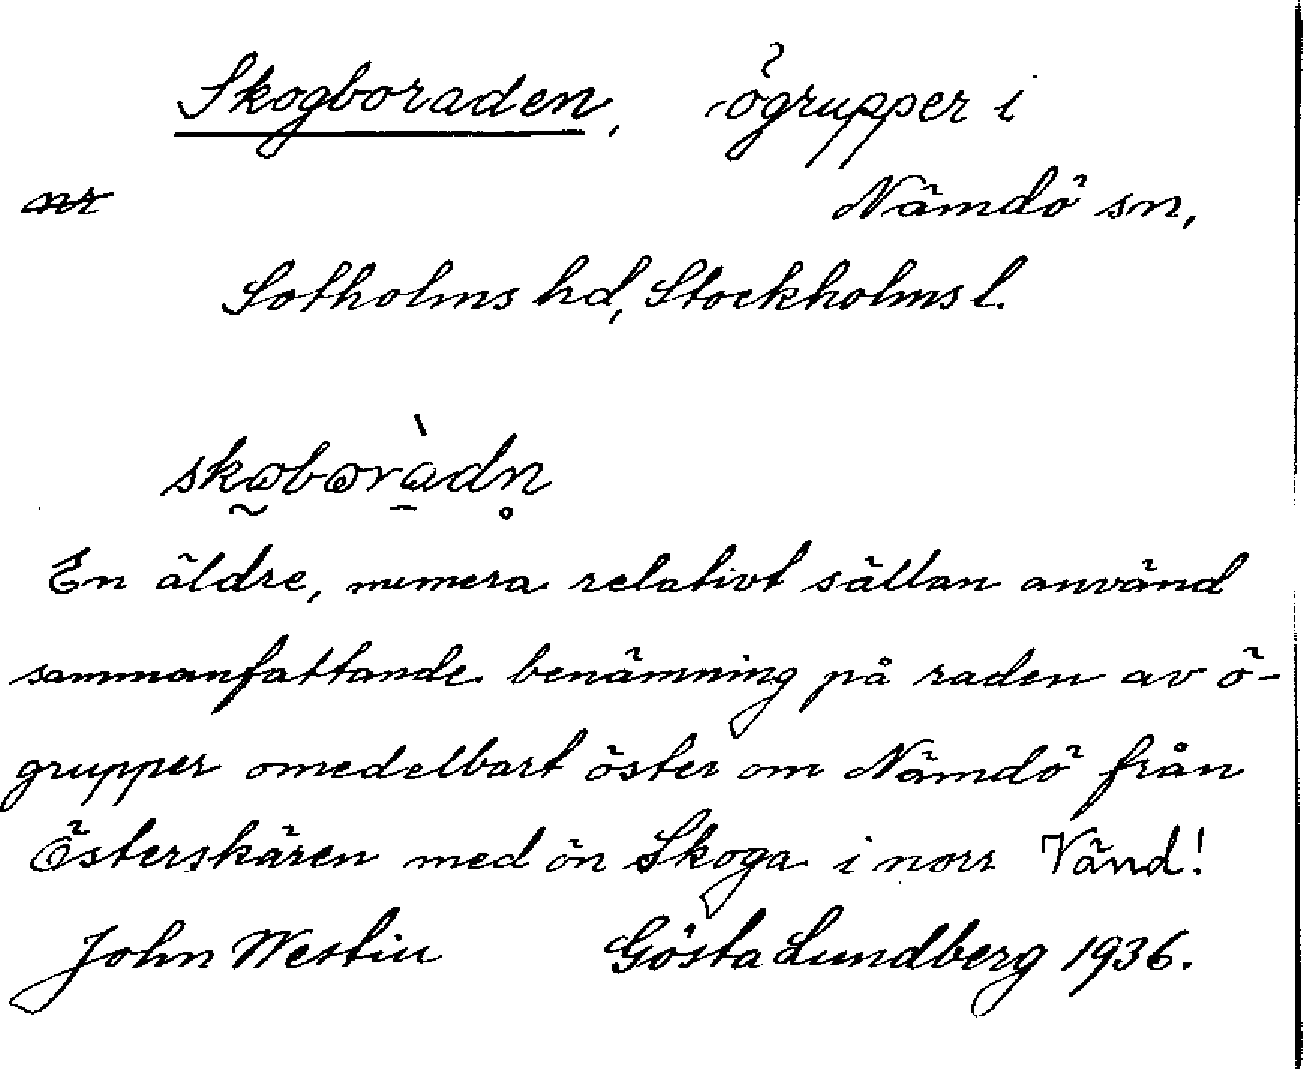 Skogboraden, ögrupper i
nr Nämdö sn,
Sotholms hd, Stockholms l.
skoboràdn̥
En äldre, numera relativt sällan använd
sammanfattande benämning på raden av ö-
grupper omedelbart öster om Nämdö från
Österskären med ön Skoga i norr Vänd!
John Westin Gösta Lundberg 1936.